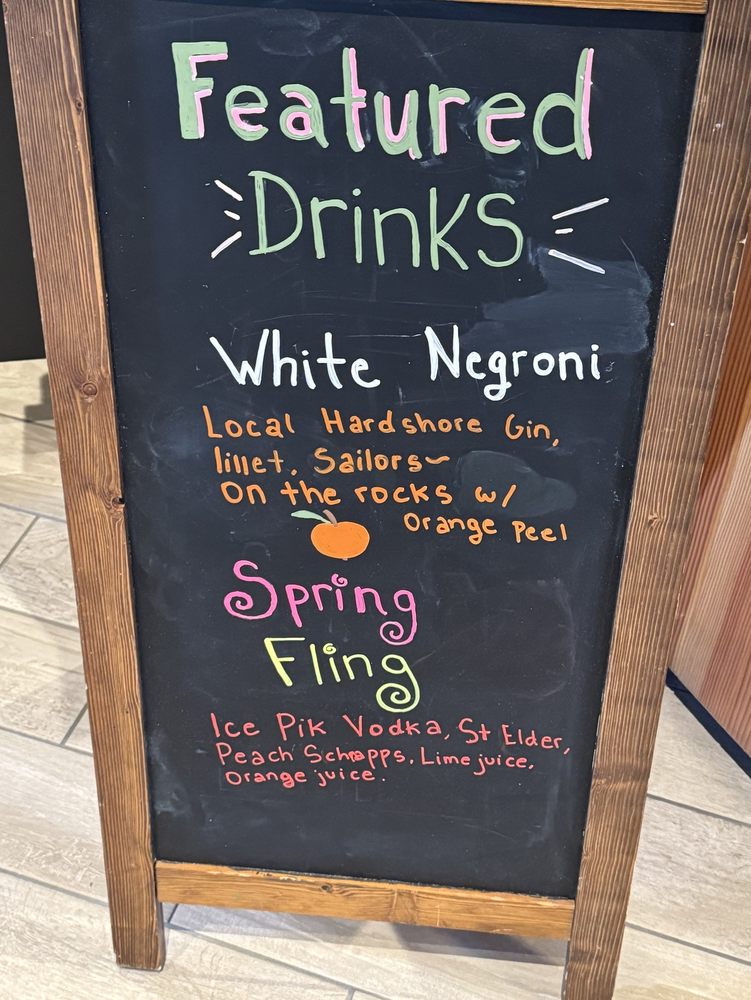 Featured
Drinks
White Negroni
Local Hardshore Gin,
lillet, Sailors~
On the rocks w/
Orange Peel
Spring
Fling
Ice Pik Vodka, St Elder,
Peach Schnapps, Lime juice,
Orange juice.